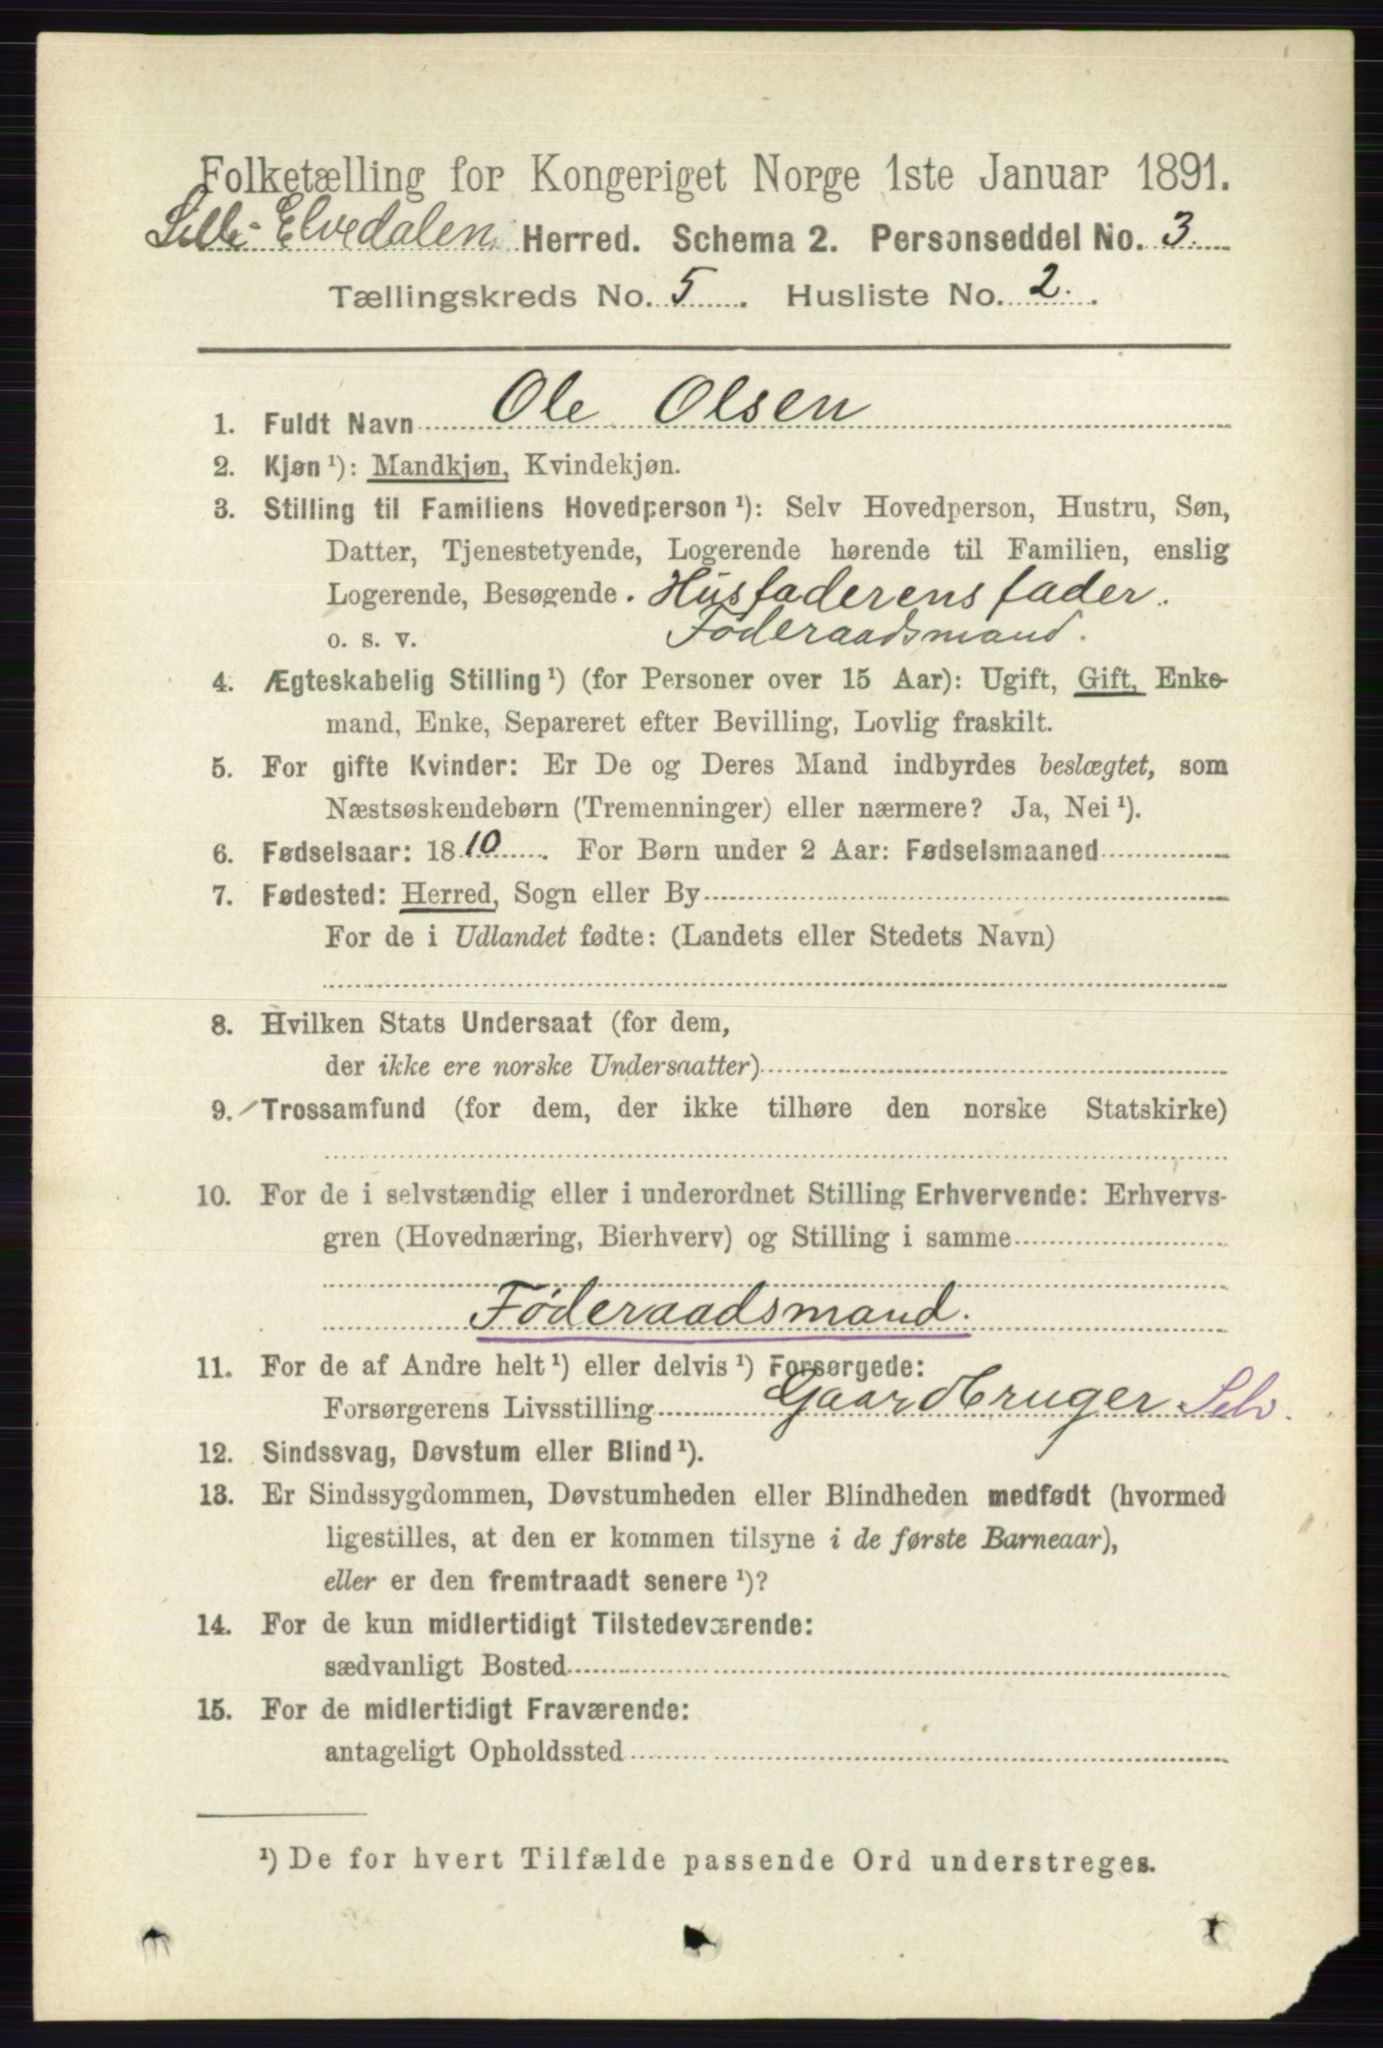 Folketælling for Kongeriget Norge 1ste Januar 1891.
Lille-Elvedalen Herred. Schema 2. Personseddel No. 3.
Tællingskreds No. 5. Husliste No. 2.
1. Fuldt Navn Ole Olsen
2. Kjøn ¹): Mandkjøn, Kvindekjøn.
3. Stilling til Familiens Hovedperson ¹): Selv Hovedperson, Hustru, Søn,
Datter, Tjenestetyende, Logerende hørende til Familien, enslig
Logerende, Besøgende. Husfaderens fader.
o. s. v. Föderaadsmand.
4. Ægteskabelig Stilling ¹) (for Personer over 15 Aar): Ugift, Gift, Enke-
mand, Enke, Separeret efter Bevilling, Lovlig fraskilt.
5. For gifte Kvinder: Er De og Deres Mand indbyrdes beslægtet, som
Næstsøskendebørn (Tremenninger) eller nærmere? Ja, Nei ¹).
6. Fødselsaar: 1810. For Børn under 2 Aar: Fødselsmaaned
7. Fødested: Herred, Sogn eller By
For de i Udlandet fødte: (Landets eller Stedets Navn)
8. Hvilken Stats Undersaat (for dem,
der ikke ere norske Undersaatter)
9. Trossamfund (for dem, der ikke tilhøre den norske Statskirke)
10. For de i selvstændig eller i underordnet Stilling Erhvervende: Erhvervs-
gren (Hovednæring, Bierhverv) og Stilling i samme
Föderaadsmand.
11. For de af Andre helt ¹) eller delvis ¹) Forsørgede:
Forsørgerens Livsstilling Gaardbruger Selv.
12. Sindssvag, Døvstum eller Blind ¹).
13. Er Sindssygdommen, Døvstumheden eller Blindheden medfødt (hvormed
ligestilles, at den er kommen tilsyne i de første Barneaar),
eller er den fremtraadt senere ¹)?
14. For de kun midlertidigt Tilstedeværende:
sædvanligt Bosted
15. For de midlertidigt Fraværende:
antageligt Opholdssted
¹) De for hvert Tilfælde passende Ord understreges.